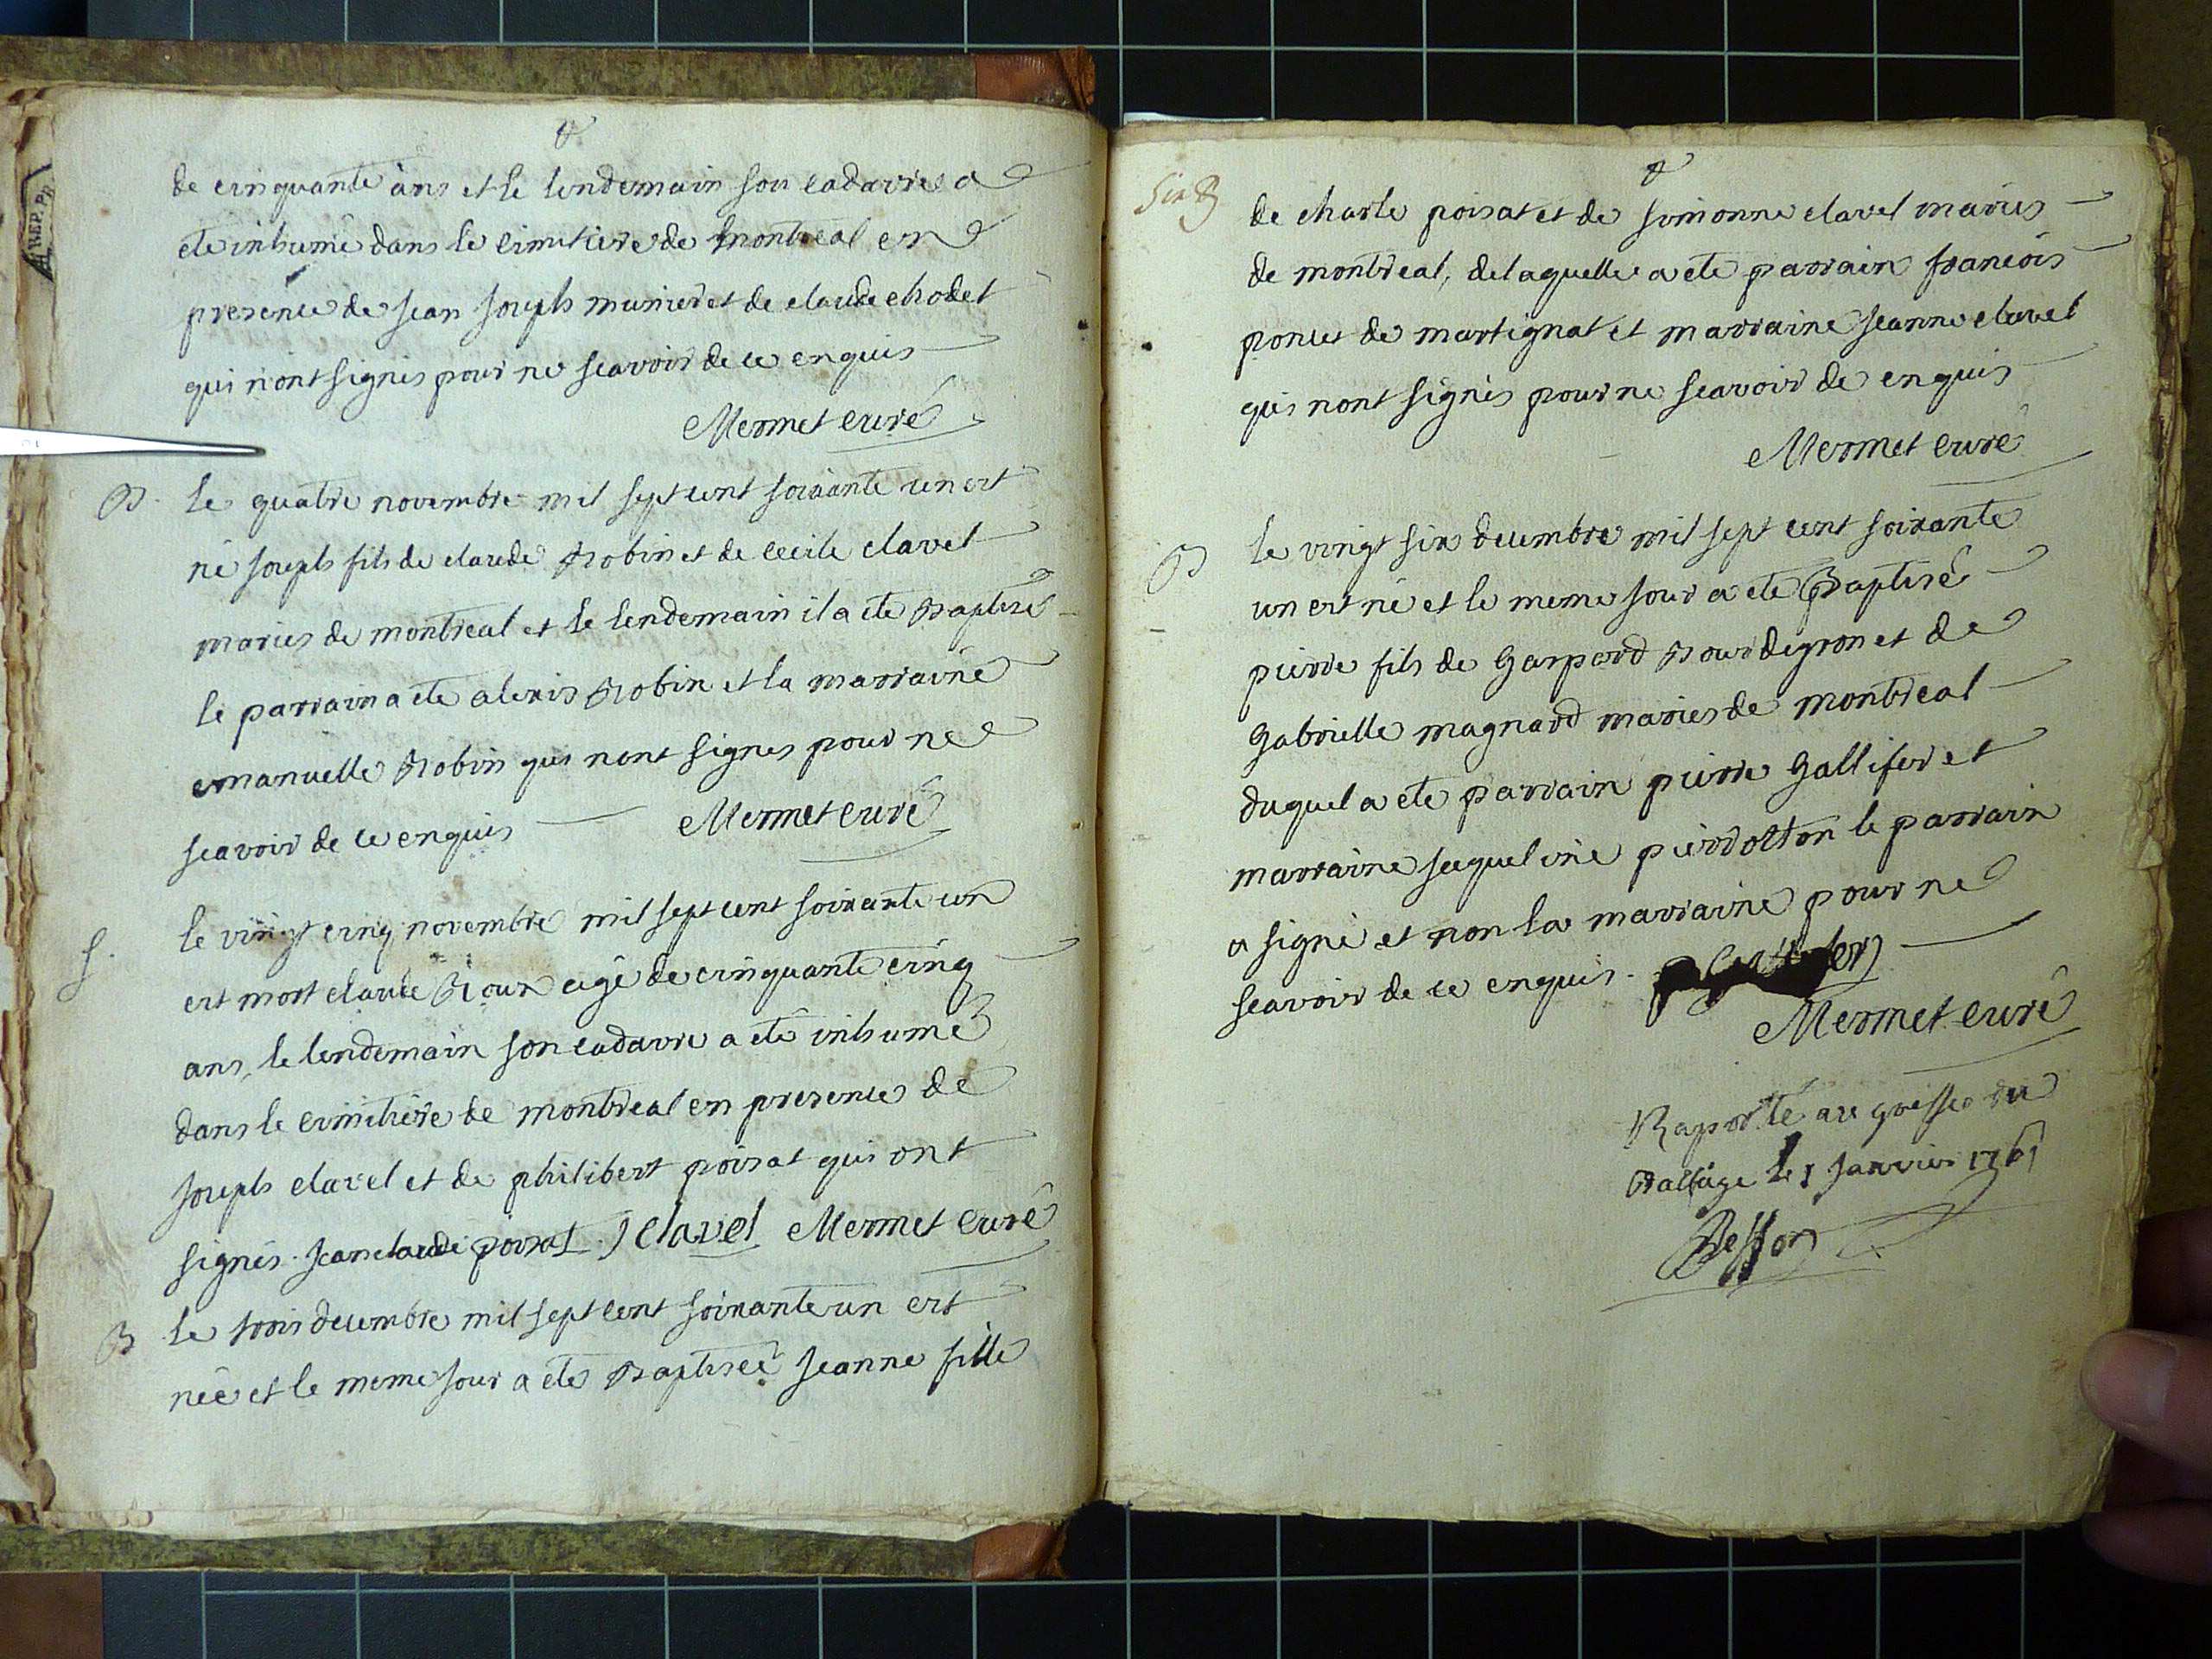 de cinquante ans et le lendemain son cadavre a
ete inhumé dans le cimitiere de montreal en
presence de jean joseph munier et de claude chodet
qui n'ont signés pour ne scavoir de ce enquis
Mermet curé
B. le quatre novembre mil sept cent soixante un est
né joseph fils de claude Robin et de cecile clavel
mariés de montreal et le lendemain il a ete Baptisé
le parrain a ete alexis Robin et la marraine
emanuelle Robin qui nont signés pour ne
scavoir de ce enquis Mermet curé
S. le vingt cinq novembre mil sept cent soixante un
est mort claude Roux agé de cinquante cinq
ans, le lendemain son cadavre a eté inhumé
dans le cimitiere de montreal en presence de
joseph clavel et de philibert poisat qui ont
signés. jean claude poisat J clavel Mermet curé
B le trois decembre mil sept cent soixante un est
née et le meme jour a ete Baptiseé jeanne fille
Six
de charle poisat et de simonne clavel mariés
de montreal, de laquelle a ete parrain francois
ponces de martignat et marraine jeanne clavel
qui nont signés pour ne scavoir de enquis
Mermet curé
B le vingt six decembre mil sept cent soixante
un est né et le meme jour a ete Baptisé
pierre fils de Gaspard Bourdigron et de
Gabrielle magnard mariés de montreal
duquel a ete parrain pierre Gallifer et
marraine jacqueline pierdolton le parrain
a signé et non la marraine pour ne
scavoir de ce enquis.
Mermet curé
Raporté au greffe du
Balliage le 5 janvier 1761
Besson